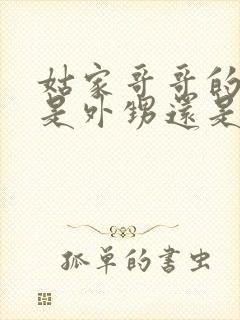 姑家哥哥的
是外甥還是
孤單的書虫